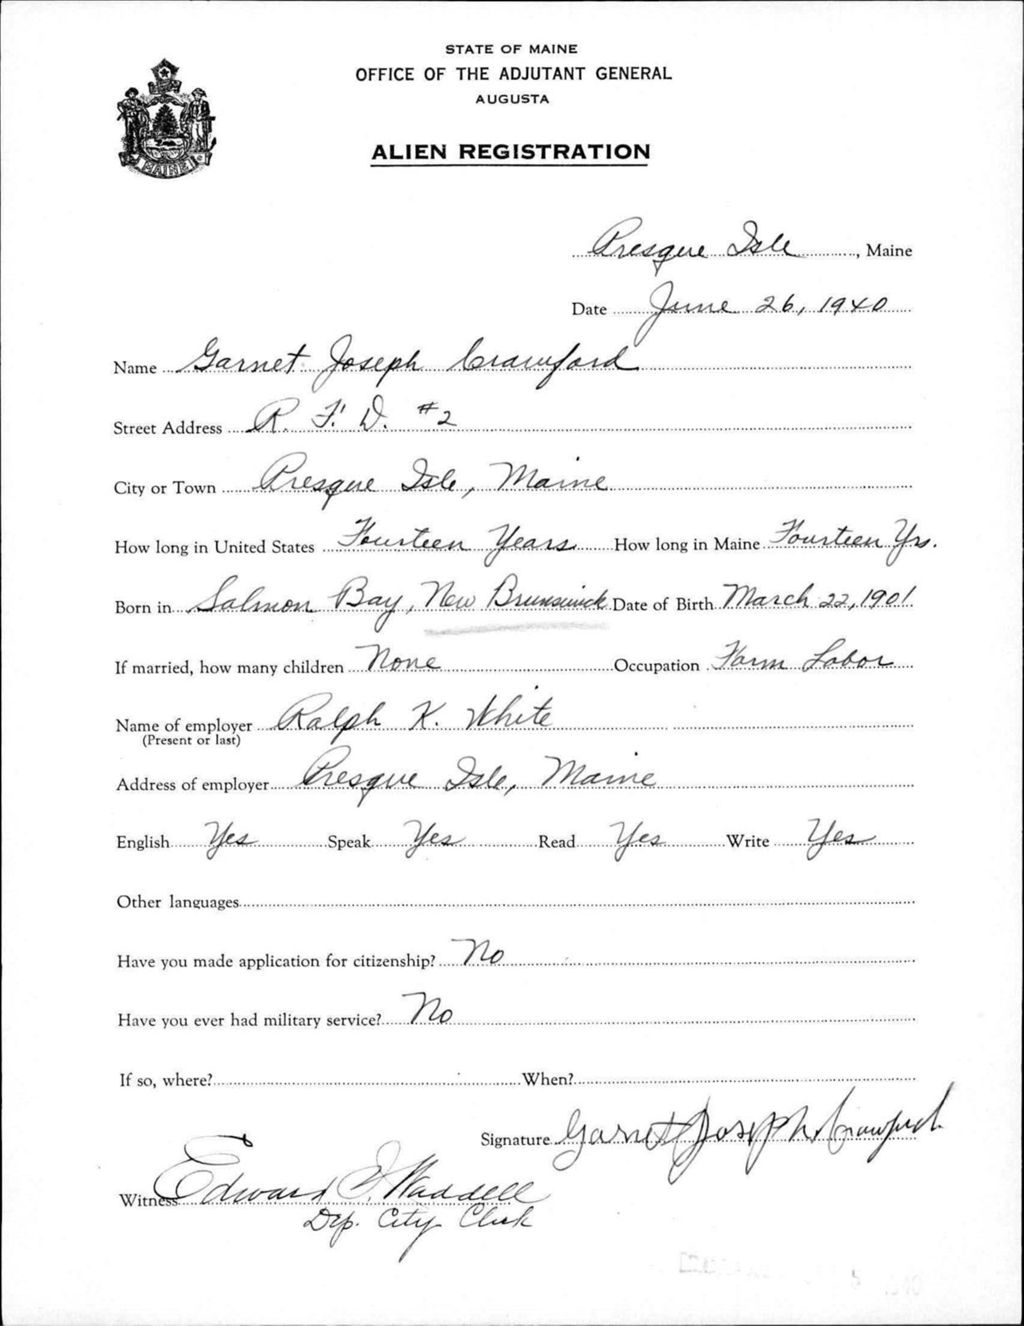 STATE OF MAINE
OFFICE OF THE ADJUTANT GENERAL
AUGUSTA
ALIEN REGISTRATION
MAINE
Presque Isle, Maine
Date June 26, 1940
Name Garnet Joseph Crawford
Street Address R. F. D. #2
City or Town Presque Isle, Maine
How long in United States Fourteen Years How long in Maine Fourteen Yrs.
Born in Salmon Bay, New Brunswick Date of Birth March 22, 1901
If married, how many children None Occupation Farm Labor
Name of employer Ralph K. White
(Present or last)
Address of employer Presque Isle, Maine
English Yes Speak Yes Read Yes Write Yes
Other languages
Have you made application for citizenship? No
Have you ever had military service? No
If so, where? When?
Signature Garnet Joseph Crawford
Witness Edward I. Waddell
Dep. City Clerk